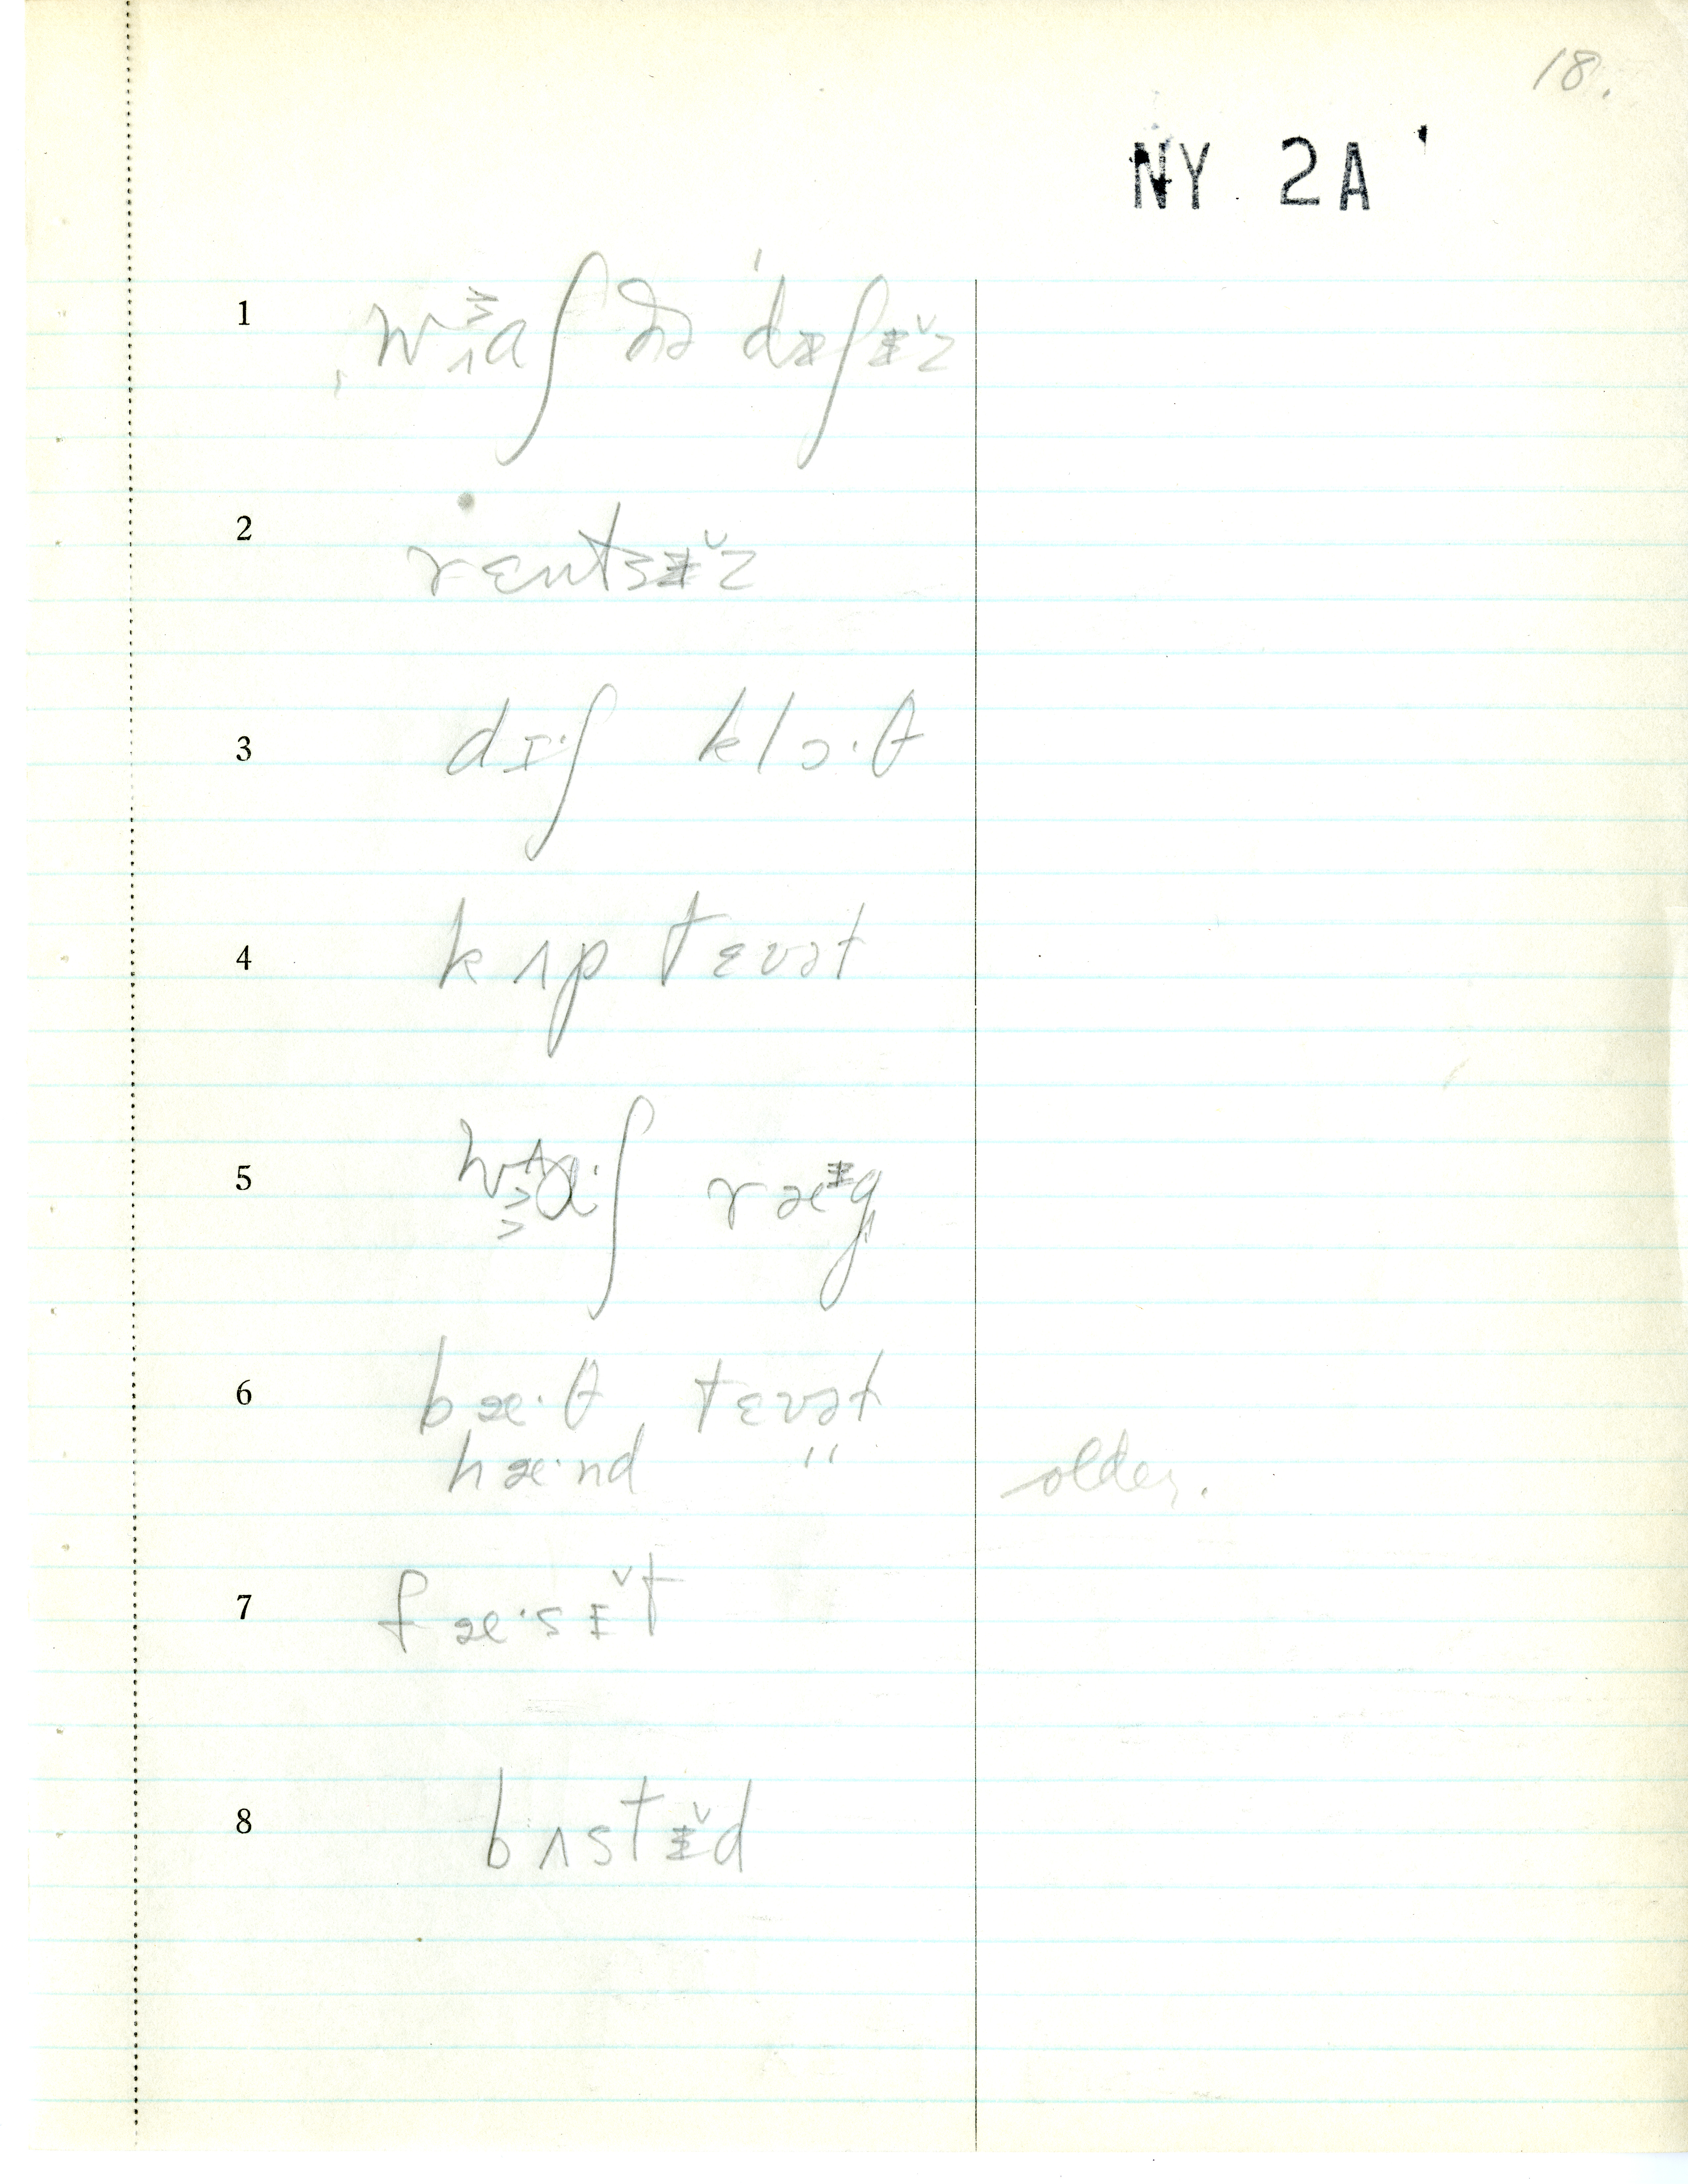 18.
NY 2A
1 ˌwɑʃ ðə ˈdɪʃɨ̆z
2 rɛntsɨ̆z
3 dɪˑʃ klɔˑθ
4 kʌp tɛʊət
5 wɑˑʃ ræᵻg
6 bæˑθ tɛʊət
hæˑnd " older.
7 fæˑsɨ̆t
8 bʌstɨ̆d